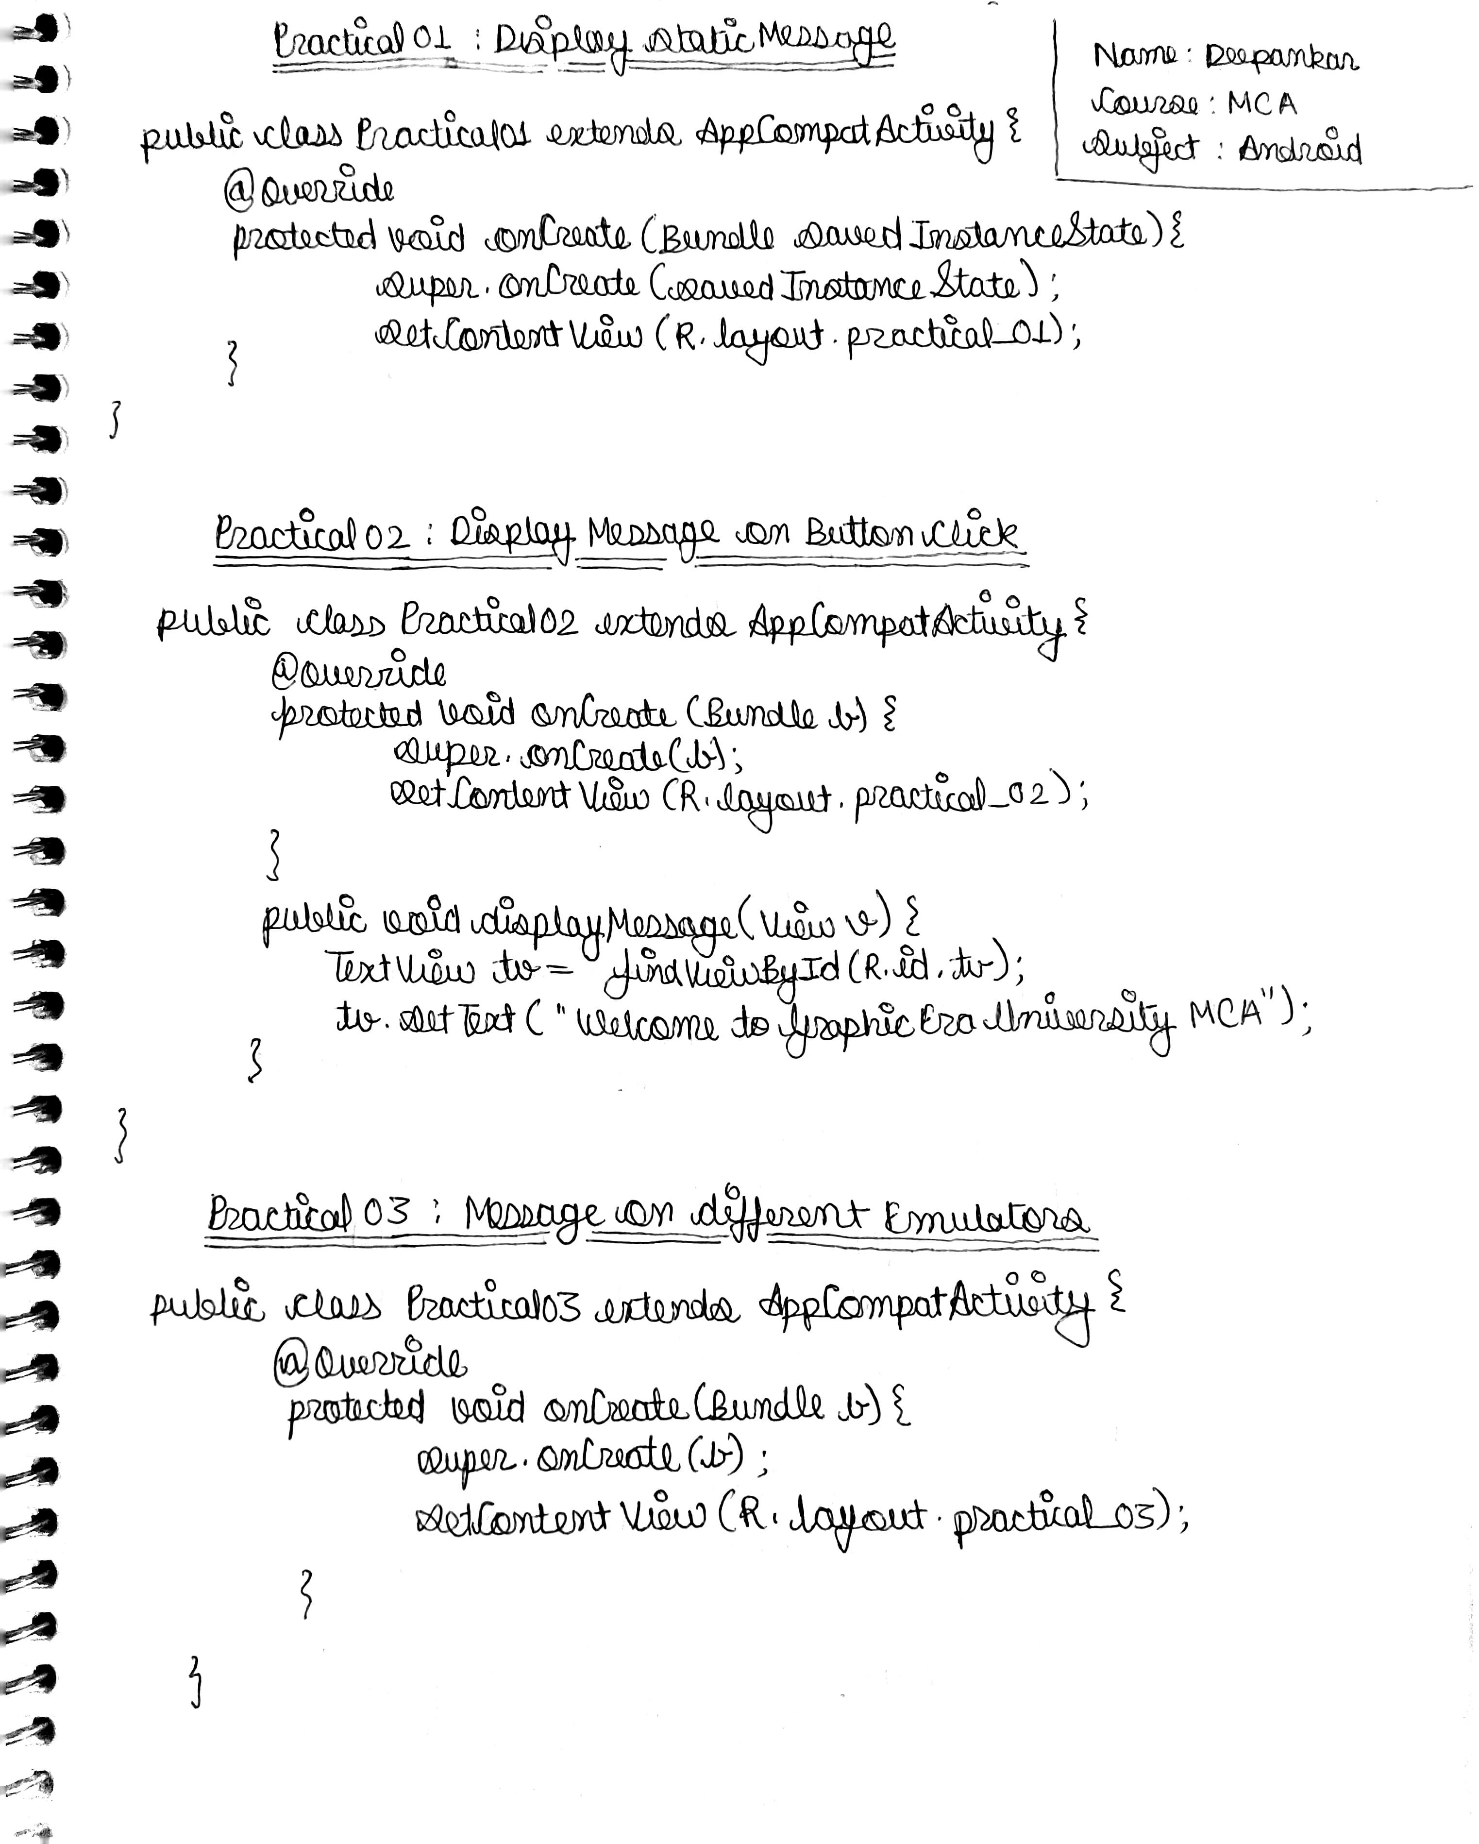 Practical 01 : Display static Message
Name : Deepankar
Course : MCA
Subject : Android
public class Practical01 extends AppCompatActivity {
@Override
protected void onCreate (Bundle savedInstanceState) {
super. onCreate (savedInstanceState) ;
setContentView (R. layout. practical_01) ;
}
}
Practical 02 : Display Message on Button Click
public class Practical02 extends AppCompatActivity {
@Override
protected void onCreate (Bundle b) {
super. onCreate (b) ;
setContentView (R. layout. practical_02) ;
}
public void displayMessage (View v) {
TextView tv = findViewById (R. id. tv) ;
tv. setText ( "Welcome to Graphic Era University MCA" ) ;
}
}
Practical 03 : Message on different Emulators
public class Practical03 extends AppCompatActivity {
@Override
protected void onCreate (Bundle b) {
super. onCreate (b) ;
setContentView (R. layout. practical_03) ;
}
}